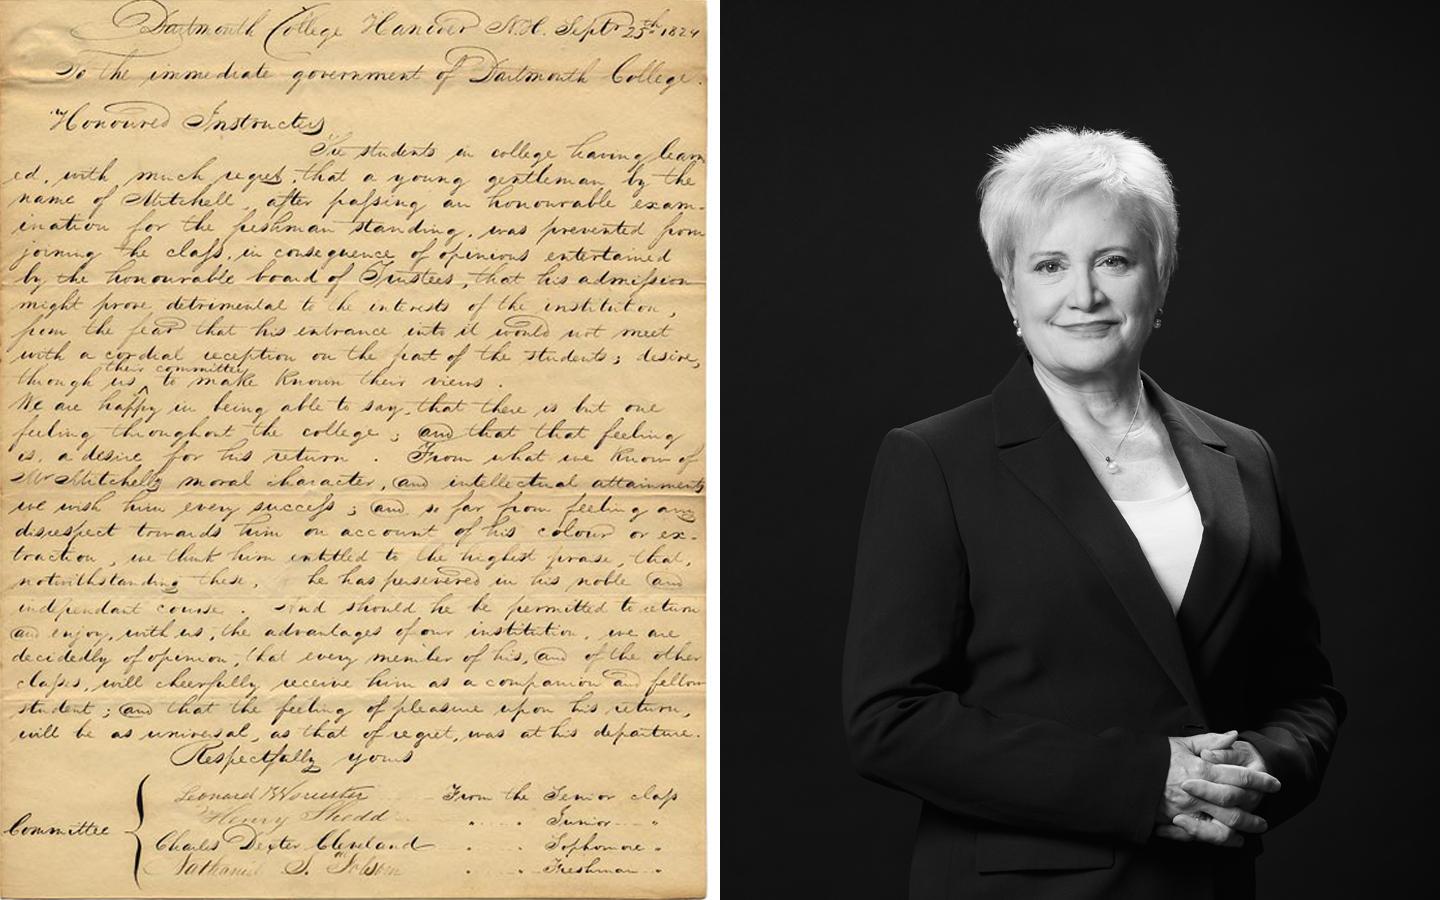 Dartmouth College Hanover N.H. Septr 25th 1824
To the immediate government of Dartmouth College.
Honoured Instructers
The students in college having learn
ed, with much regret, that a young gentleman by the
name of Mitchell, after passing an honourable exam-
ination for the freshman standing, was prevented from
joining the class, in consequence of opinions entertained
by the honourable board of Trustees, that his admission
might prove detrimental to the interests of the institution,
from the fear that his entrance into it would not meet
with a cordial reception on the part of the students; desire,
their committee
through us ^ to make known their views.
We are happy in being able to say, that there is but one
feeling throughout the college; and that that feeling
is, a desire for his return. From what we know of
Mr Mitchells moral character, and intellectual attainments
we wish him every success; and so far from feeling any
disrespect towards him on account of his colour or ex-
traction, we think him entitled to the highest praise, that,
notwithstanding these, he has persevered in his noble and
independant course. And should he be permitted to return
and enjoy, with us, the advantages of our institution, we are
decidedly of opinion, that every member of his, and of the other
classes, will cheerfully receive him as a companion and fellow
student; and that the feeling of pleasure upon his return,
will be as universal, as that of regret, was at his departure.
Respectfully yours
Leonard Worcester From the Senior class
Henry Shedd " Junior "
Committee
Charles Dexter Cleveland " Sophomore "
Nathaniel S. " Freshman "